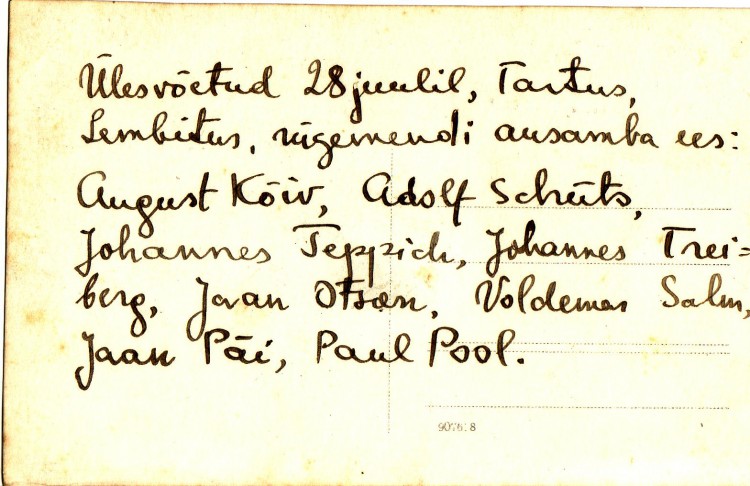 Ülesvõetud 28 juulil, Tartus,
Lembitus, rügemendi ausamba ees:
August Kõiv, Adolf Schüts,
Johannes Teppich, Johannes Trei=
berg, Jaan Otsæn, Voldemar Salm,
Jaan Päi, Paul Pool.